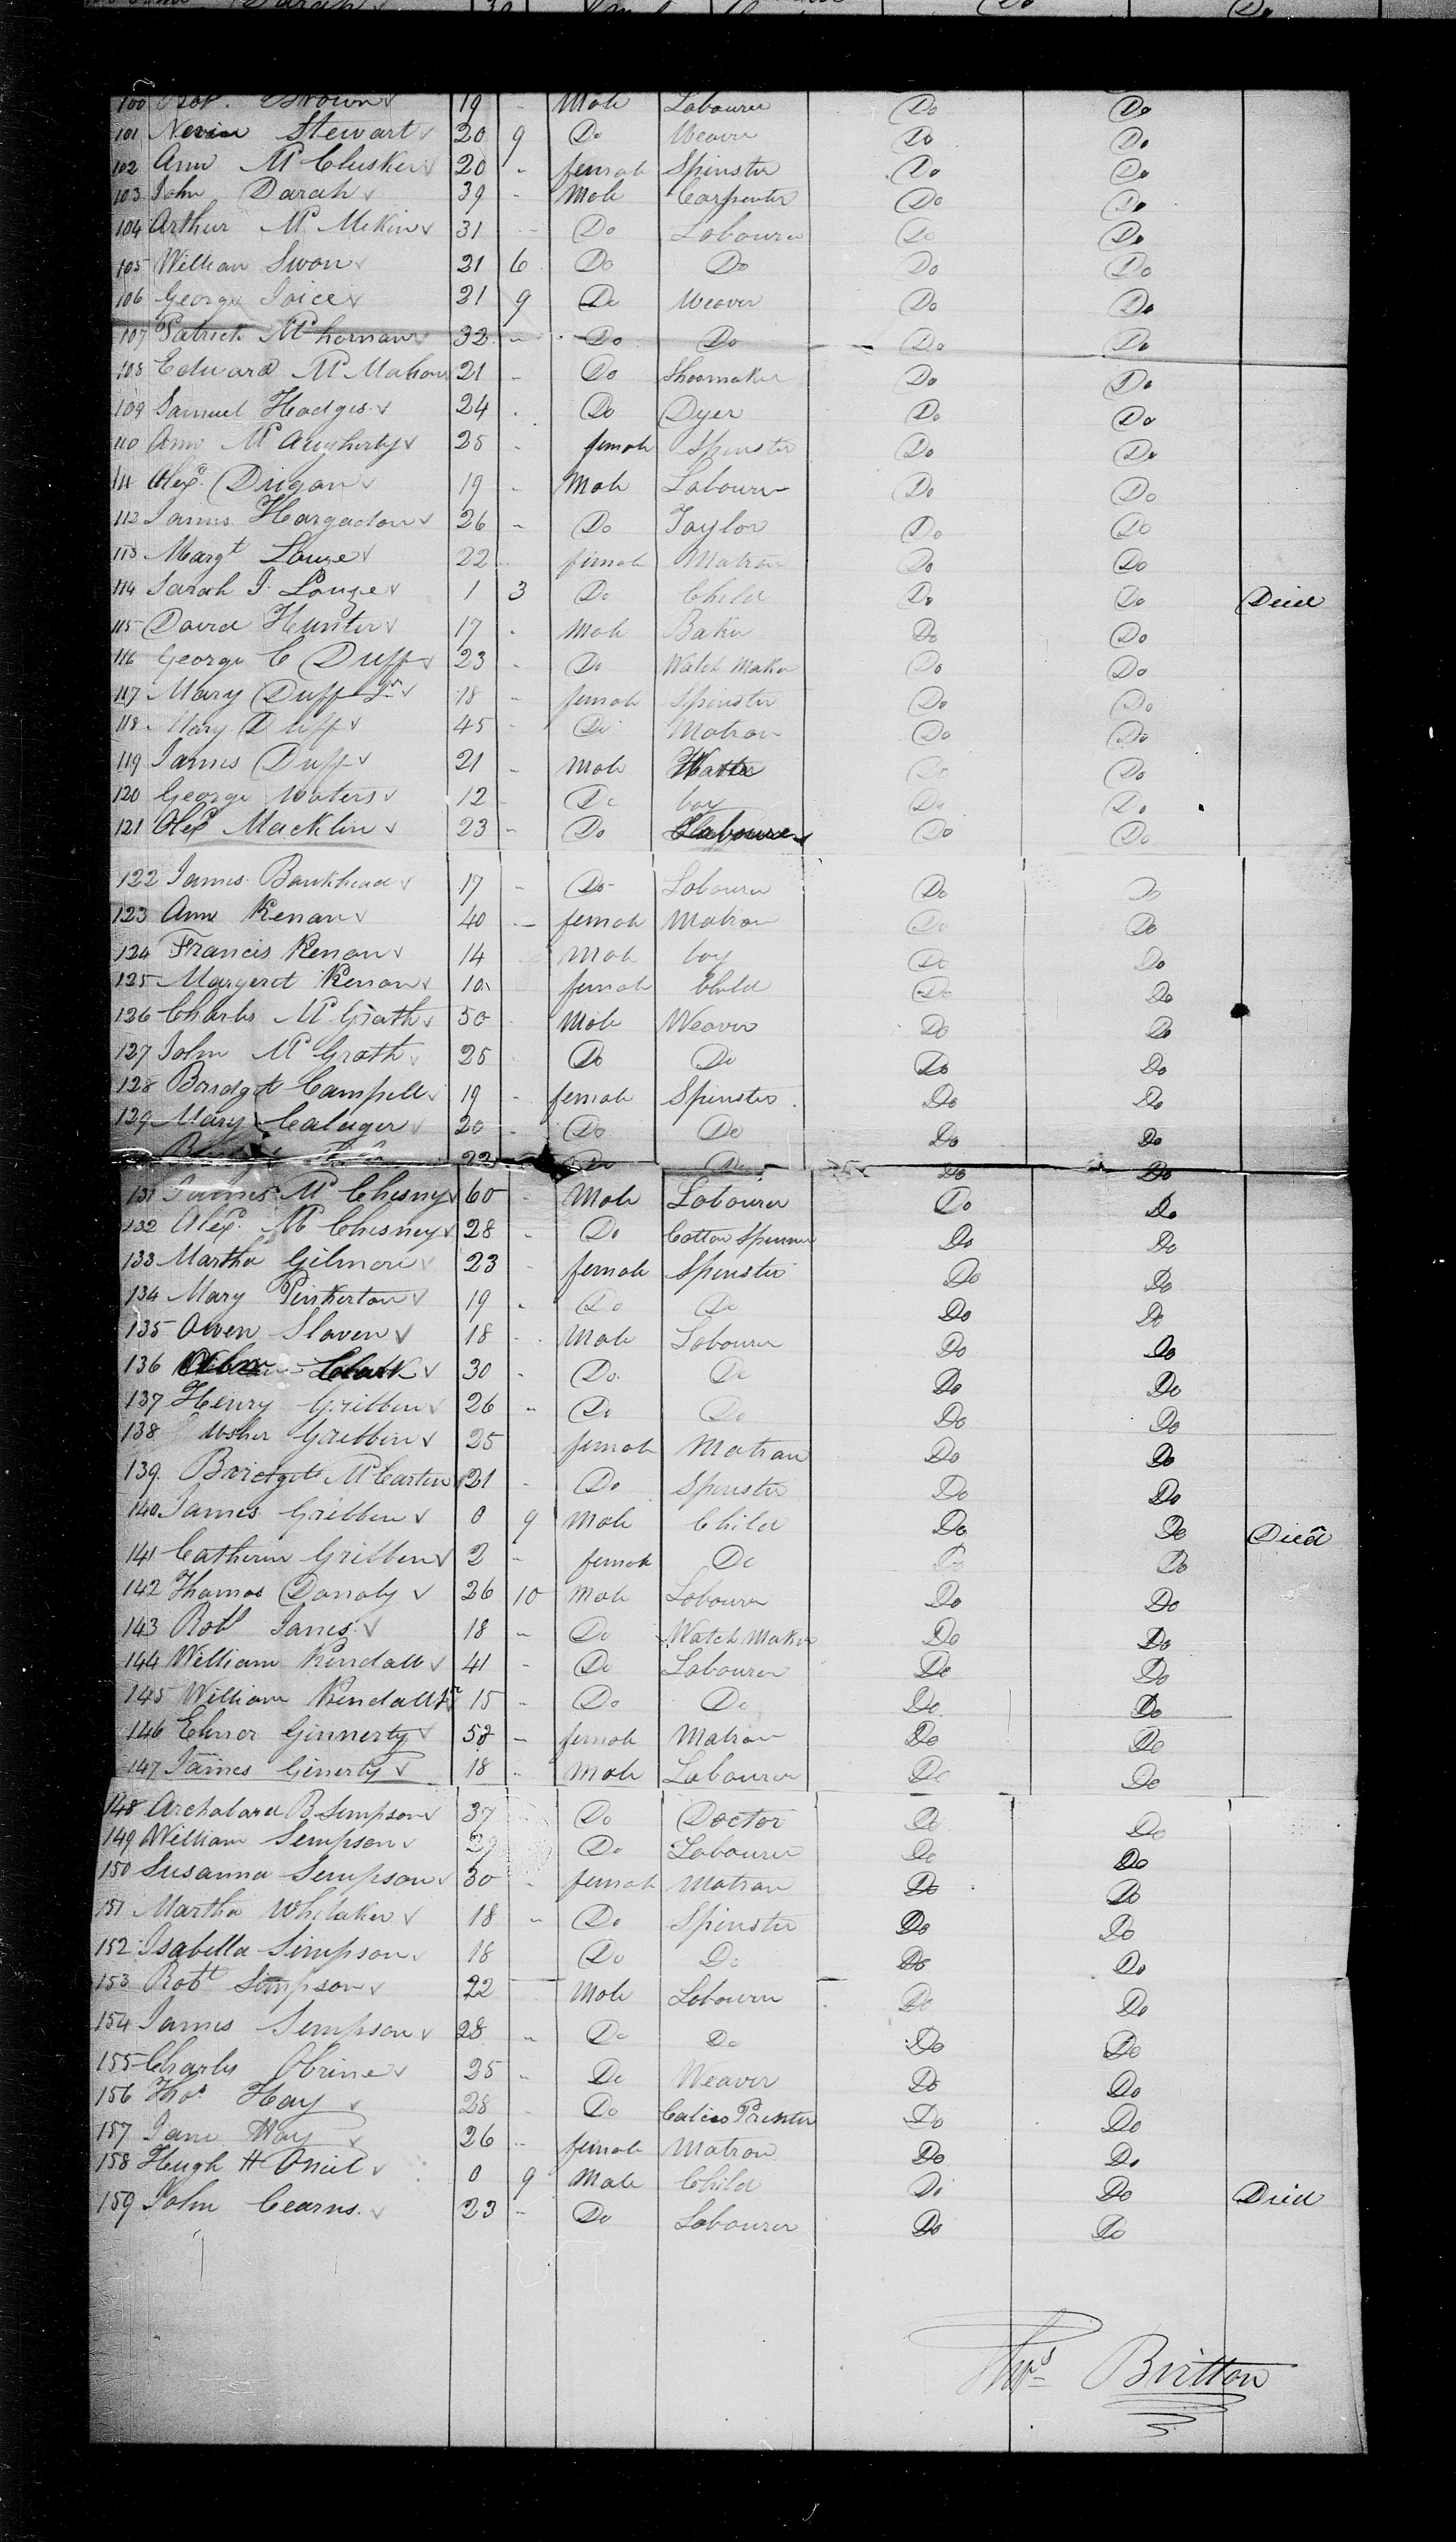 Sarah 30 Do Do
100 Robt. Brown 19 - Male Labourer Do Do
101 Stewart 20 9 Do Weaver Do Do
102 Ann McClusker 20 - female Spinster Do Do
103 John Darah 39 - Male Carpenter Do Do
104 Arthur McMekin 31 - Do Labourer Do Do
105 William Swan 21 6 Do Do Do Do
106 George Joice 21 9 Do Weaver Do Do
107 Patrick 32 - Do Do Do Do
108 Edward McMahon 21 - Do Shoemaker Do Do
109 Samuel Hodges 24 . Do Dyer Do Do
110 Ann McAugherty 25 - female Spinster Do Do
111 Alexr. Dugan 19 - Male Labourer Do Do
112 James Hargadon 26 - Do Taylor Do Do
113 Margt Louge 22 - female Matron Do Do
114 Sarah J. Louge 1 3 Do Child Do Do Died
115 David Hunter 17 - Male Baker Do Do
116 George C Duff 23 - Do Watch Maker Do Do
117 Mary Duff Jr 18 - female Spinster Do Do
118 Mary Duff 45 - Do Matron Do Do
119 James Duff 21 - Male Do Do
120 George Waters 12 - Do boy Do Do
121 Alexr Macklin 23 - Do Labourer Do Do
122 James Bankhead 17 - Do Labourer Do Do
123 Ann Kenan 40 - female Matron Do Do
124 Francis Kenan 14 Male boy Do Do
125 Margeret Kenan 10 female Child Do Do
126 Charles McGrath 50 Male Weaver Do Do
127 John McGrath 25 - Do Do Do Do
128 Bridget Campell 19 - female Spinster Do Do
129 Mary Calager 20 - Do Do Do Do
22 Do Do Do Do
131 James McChesney 60 - Male Labourer Do Do
132 Alexr. McChesney 28 - Do Cotton Spinner Do Do
133 Martha Gilmore 23 - female Spinster Do Do
134 Mary Pinkerton 19 - Do Do Do Do
135 Owen Slaven 18 - Male Labourer Do Do
136 Clark 30 - Do Do Do Do
137 Henry Gribben 26 - Do Do Do Do
138 Gribben 25 female Matron Do Do
139 Bridget McCarten 21 - Do Spinster Do Do
140 James Gribben 0 9 Male Child Do Do Died
141 Catherin Gribben 2 - female Do Do Do
142 Thomas Donaly 26 10 Male Labourer Do Do
143 Robt James 18 - Do Watch Maker Do Do
144 William Kendall 41 - Do Labourer Do Do
145 William Kendall Jr 15 - Do Do Do Do
146 Elinor Ginnerty 58 - female Matron Do Do
147 James Ginerty 18 - Male Labourer Do Do
148 Archabard B Simpson 37 Do Doctor Do Do
149 William Sempson Do Labourer Do Do
150 Susanna Sempson 30 - female Matron Do Do
151 Martha Whitaker 18 - Do Spinster Do Do
152 Isabella Simpson 18 Do Do Do Do
153 Robt Simpson 22 Male Labourer Do Do
154 James Sempson 28 - Do Do Do Do
155 Charles Obrine 25 - Do Weaver Do Do
156 Thos Hay 28 - Do Calico Printer Do Do
157 Jane Hay 26 - female Matron Do Do
158 Hugh H Oneil 0 9 Male Child Do Do Died
159 John Cearns 23 - Do Labourer Do Do
Thos Britton